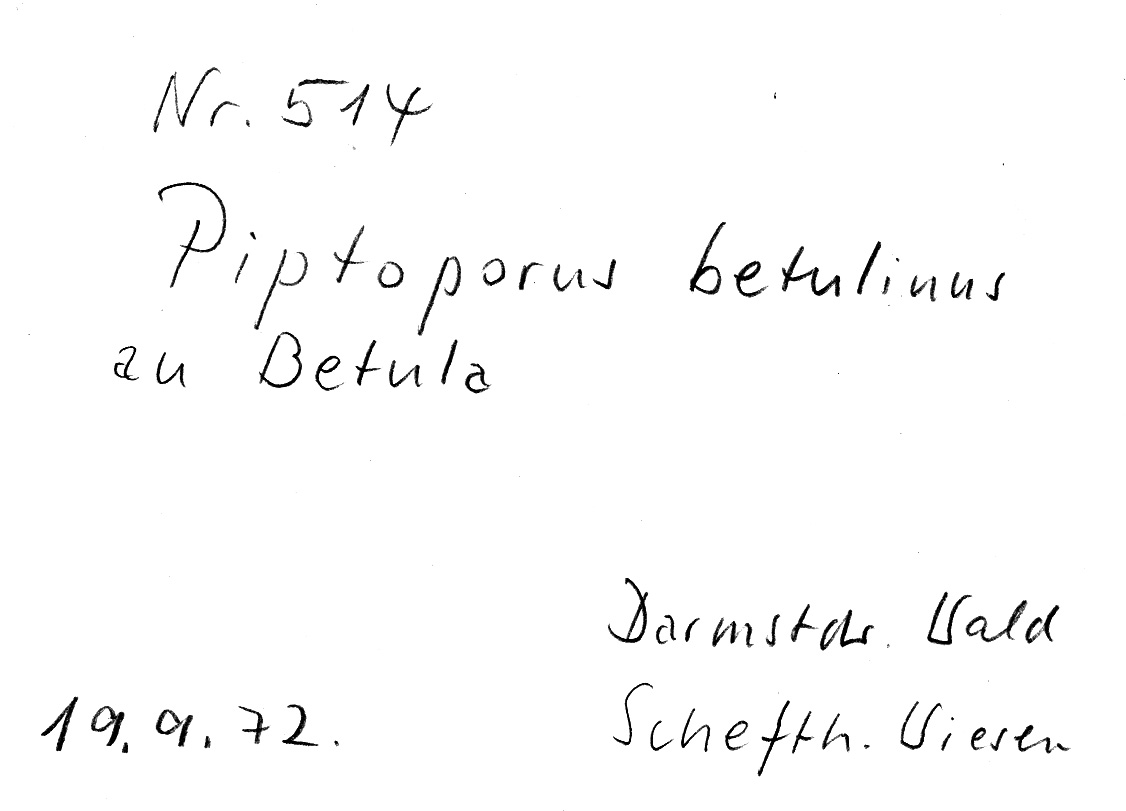 Nr. 514
Piptoporus betulinus
an Betula
Darmstdr. Wald
19.9.72.
Schefth. Wiesen